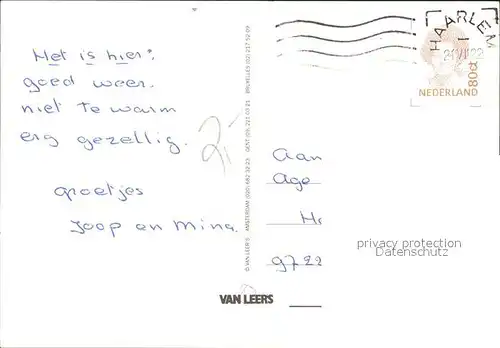 Het is hier:
goed weer.
niet te warm
erg gezellig.
groetjes
Joop en Mina.
2,-
© VAN LEER'S AMSTERDAM (020) 682 32 23 GENT (09) 221 03 21 BRUXELLES (02) 217 52 09
HAARLEM
80ct
NEDERLAND
Aan
Age
Hr
privacy protection
Datenschutz
9722
VAN LEERS